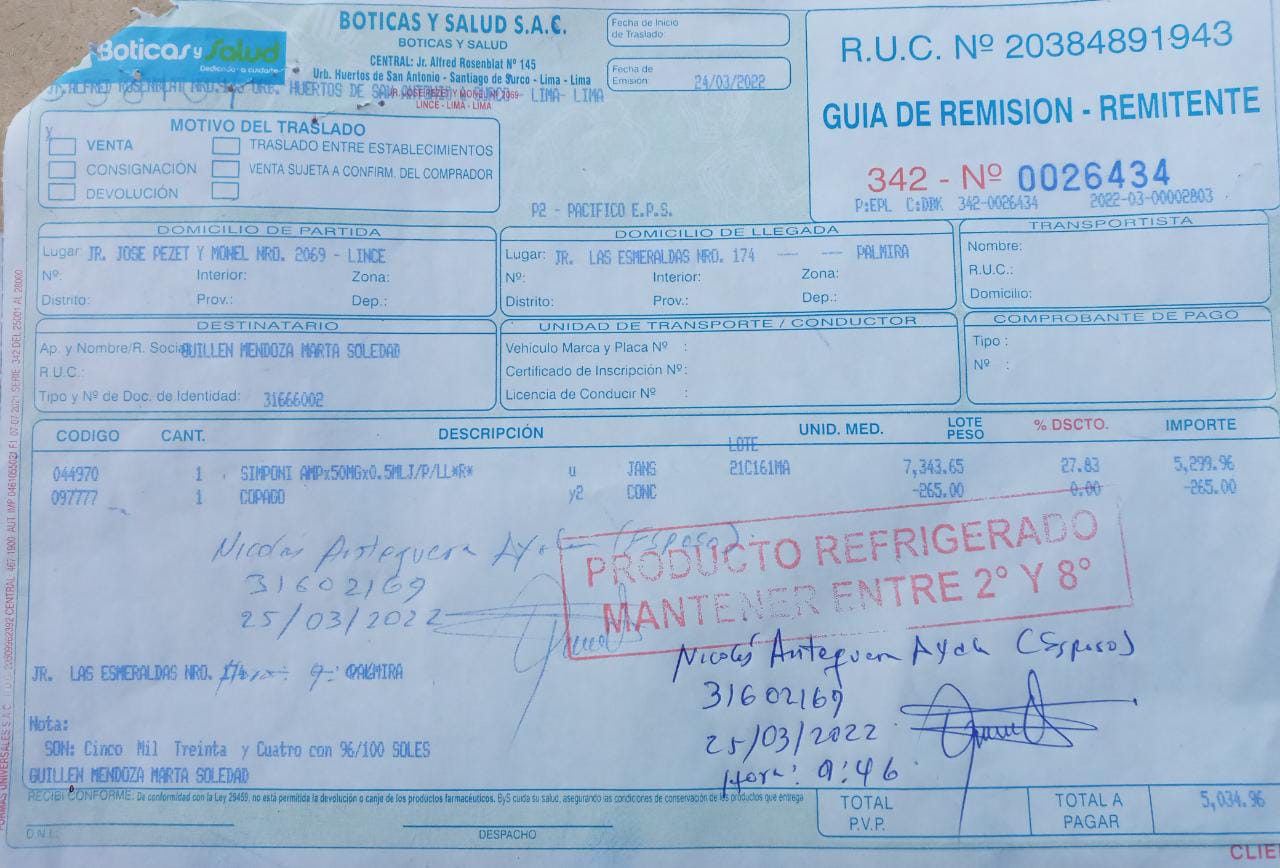 Boticas y Salud
Dedicados a cuidarte
BOTICAS Y SALUD S.A.C.
BOTICAS Y SALUD
CENTRAL: Jr. Alfred Rosenblat Nº 145
Urb. Huertos de San Antonio - Santiago de Surco - Lima - Lima
JR. JOSE PEZET Y MONEL Nº 2069
LINCE - LIMA - LIMA
Fecha de Inicio de Traslado:
Fecha de Emisión 24/03/2022
R.U.C. Nº 20384891943
GUIA DE REMISION - REMITENTE
342 - Nº 0026434
P:EPL C:DBK 342-0026434 2022-03-00002803
MOTIVO DEL TRASLADO
X VENTA
TRASLADO ENTRE ESTABLECIMIENTOS
CONSIGNACIÓN
VENTA SUJETA A CONFIRM. DEL COMPRADOR
DEVOLUCIÓN
P2 - PACIFICO E.P.S.
DOMICILIO DE PARTIDA
Lugar: JR. JOSE PEZET Y MONEL NRO. 2069 - LINCE
Nº: Interior: Zona:
Distrito: Prov.: Dep.:
DOMICILIO DE LLEGADA
Lugar: JR. LAS ESMERALDAS NRO. 174 --- --- PALMIRA
Nº: Interior: Zona:
Distrito: Prov.: Dep.:
TRANSPORTISTA
Nombre:
R.U.C.:
Domicilio:
DESTINATARIO
Ap. y Nombre/R. Social GUILLEN MENDOZA MARTA SOLEDAD
R.U.C.:
Tipo y Nº de Doc. de Identidad: 31666002
UNIDAD DE TRANSPORTE / CONDUCTOR
Vehículo Marca y Placa Nº :
Certificado de Inscripción Nº :
Licencia de Conducir Nº :
COMPROBANTE DE PAGO
Tipo :
Nº :
CODIGO CANT. DESCRIPCIÓN UNID. MED. LOTE PESO % DSCTO. IMPORTE
LOTE
044970 1 SIMPONI AMPx50MGx0.5MLJ/P/LL*R* u JANS 21C161MA 7,343.65 27.83 5,299.96
097777 1 COPAGO y2 CONC -265.00 0.00 -265.00
Nicolás Antequera Ayala (Esposo)
31602169
25/03/2022
PRODUCTO REFRIGERADO
MANTENER ENTRE 2° Y 8°
Nicolás Antequera Ayala (Esposo)
31602169
25/03/2022
Hora: 9:46
JR. LAS ESMERALDAS NRO. 174 PALMIRA
Nota:
SON: Cinco Mil Treinta y Cuatro con 96/100 SOLES
GUILLEN MENDOZA MARTA SOLEDAD
RECIBI CONFORME: De conformidad con la Ley 29459, no está permitida la devolución o canje de los productos farmacéuticos. ByS cuida su salud, asegurando las condiciones de conservación de los productos que entrega
D.N.I.
DESPACHO
TOTAL P.V.P.
TOTAL A PAGAR 5,034.96
CLIE